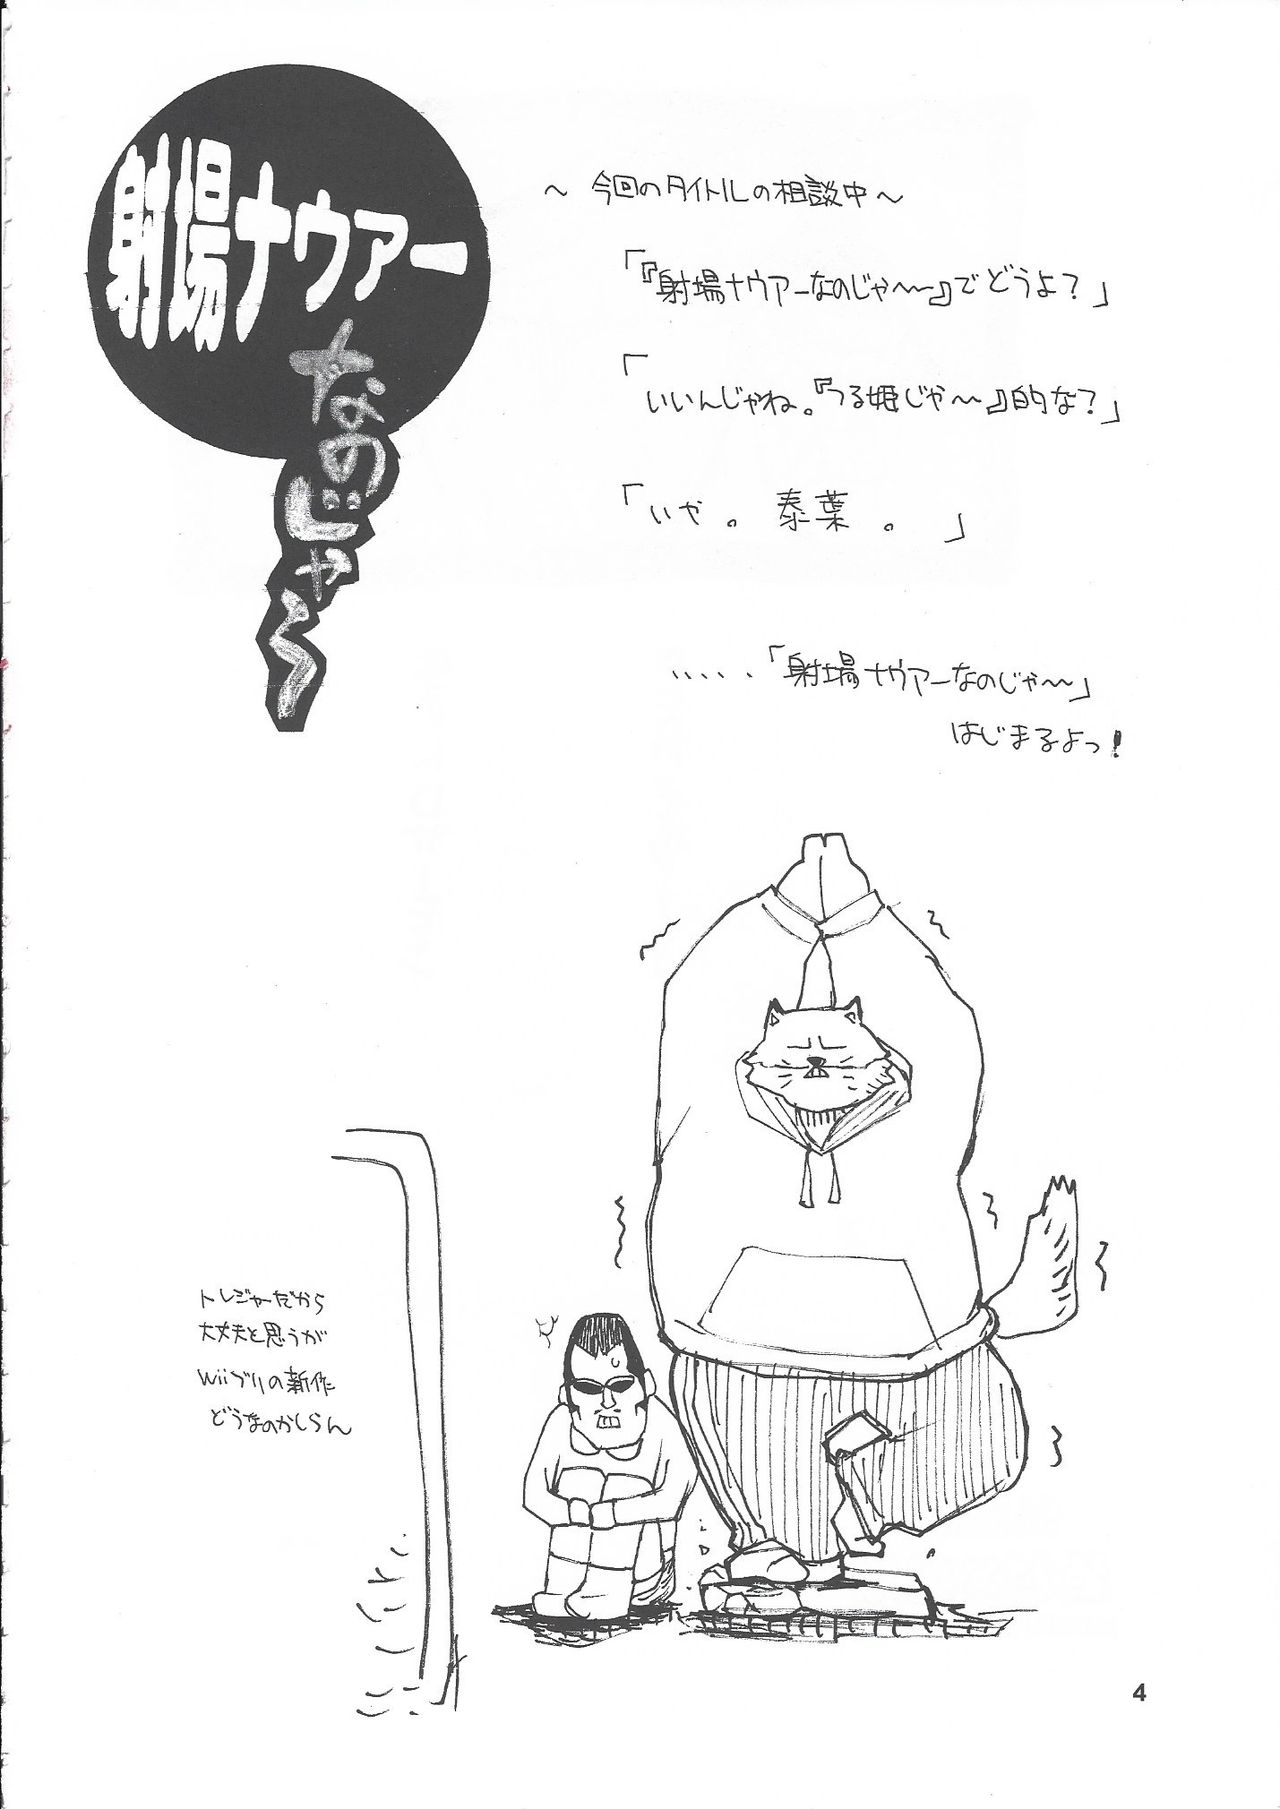 射場ナウアー
なのじゃ〜
〜 今回のタイトルの相談中〜
「『射場ナウアーなのじゃ〜〜』でどうよ？」
「いいんじゃね。『つる姫じゃ〜〜』的な？」
「いや。 泰葉 。 」
、、、、、「射場ナウアーなのじゃ〜〜」
はじまるよっ！
トレジャーだから
大丈夫と思うが
Wiiブリの新作
どうなのかしらん
4